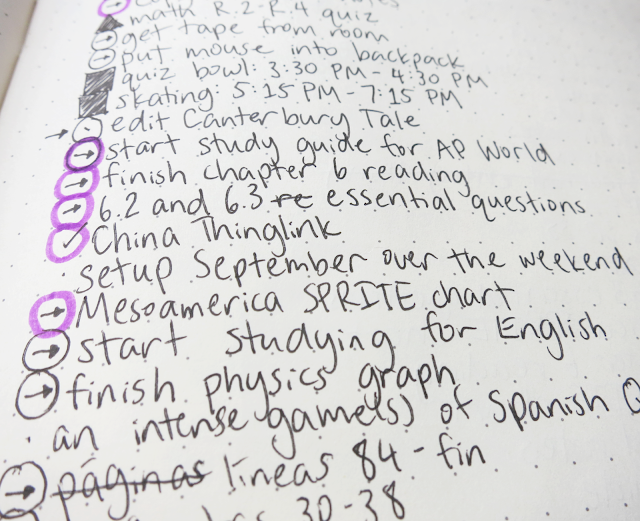 math R.2-R.4 quiz
get tape from room
put mouse into backpack
quiz bowl: 3:30 PM - 4:30 PM
skating: 5:15 PM - 7:15 PM
edit Canterbury Tale
start study guide for AP World
finish chapter 6 reading
6.2 and 6.3 re essential questions
China Thinglink
setup September over the weekend
Mesoamerica SPRITE chart
start studying for English
finish physics graph
an intense game(s) of Spanish Q
páginas líneas 84 - fin
30-38